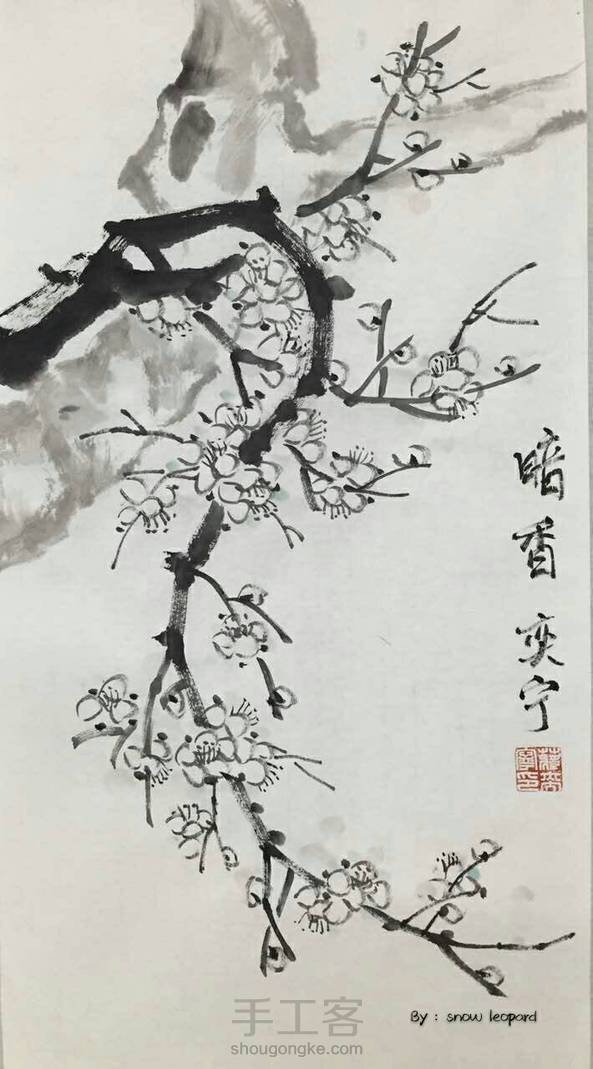 暗香 奕宁
手工客
By : snow leopard
shougongke.com